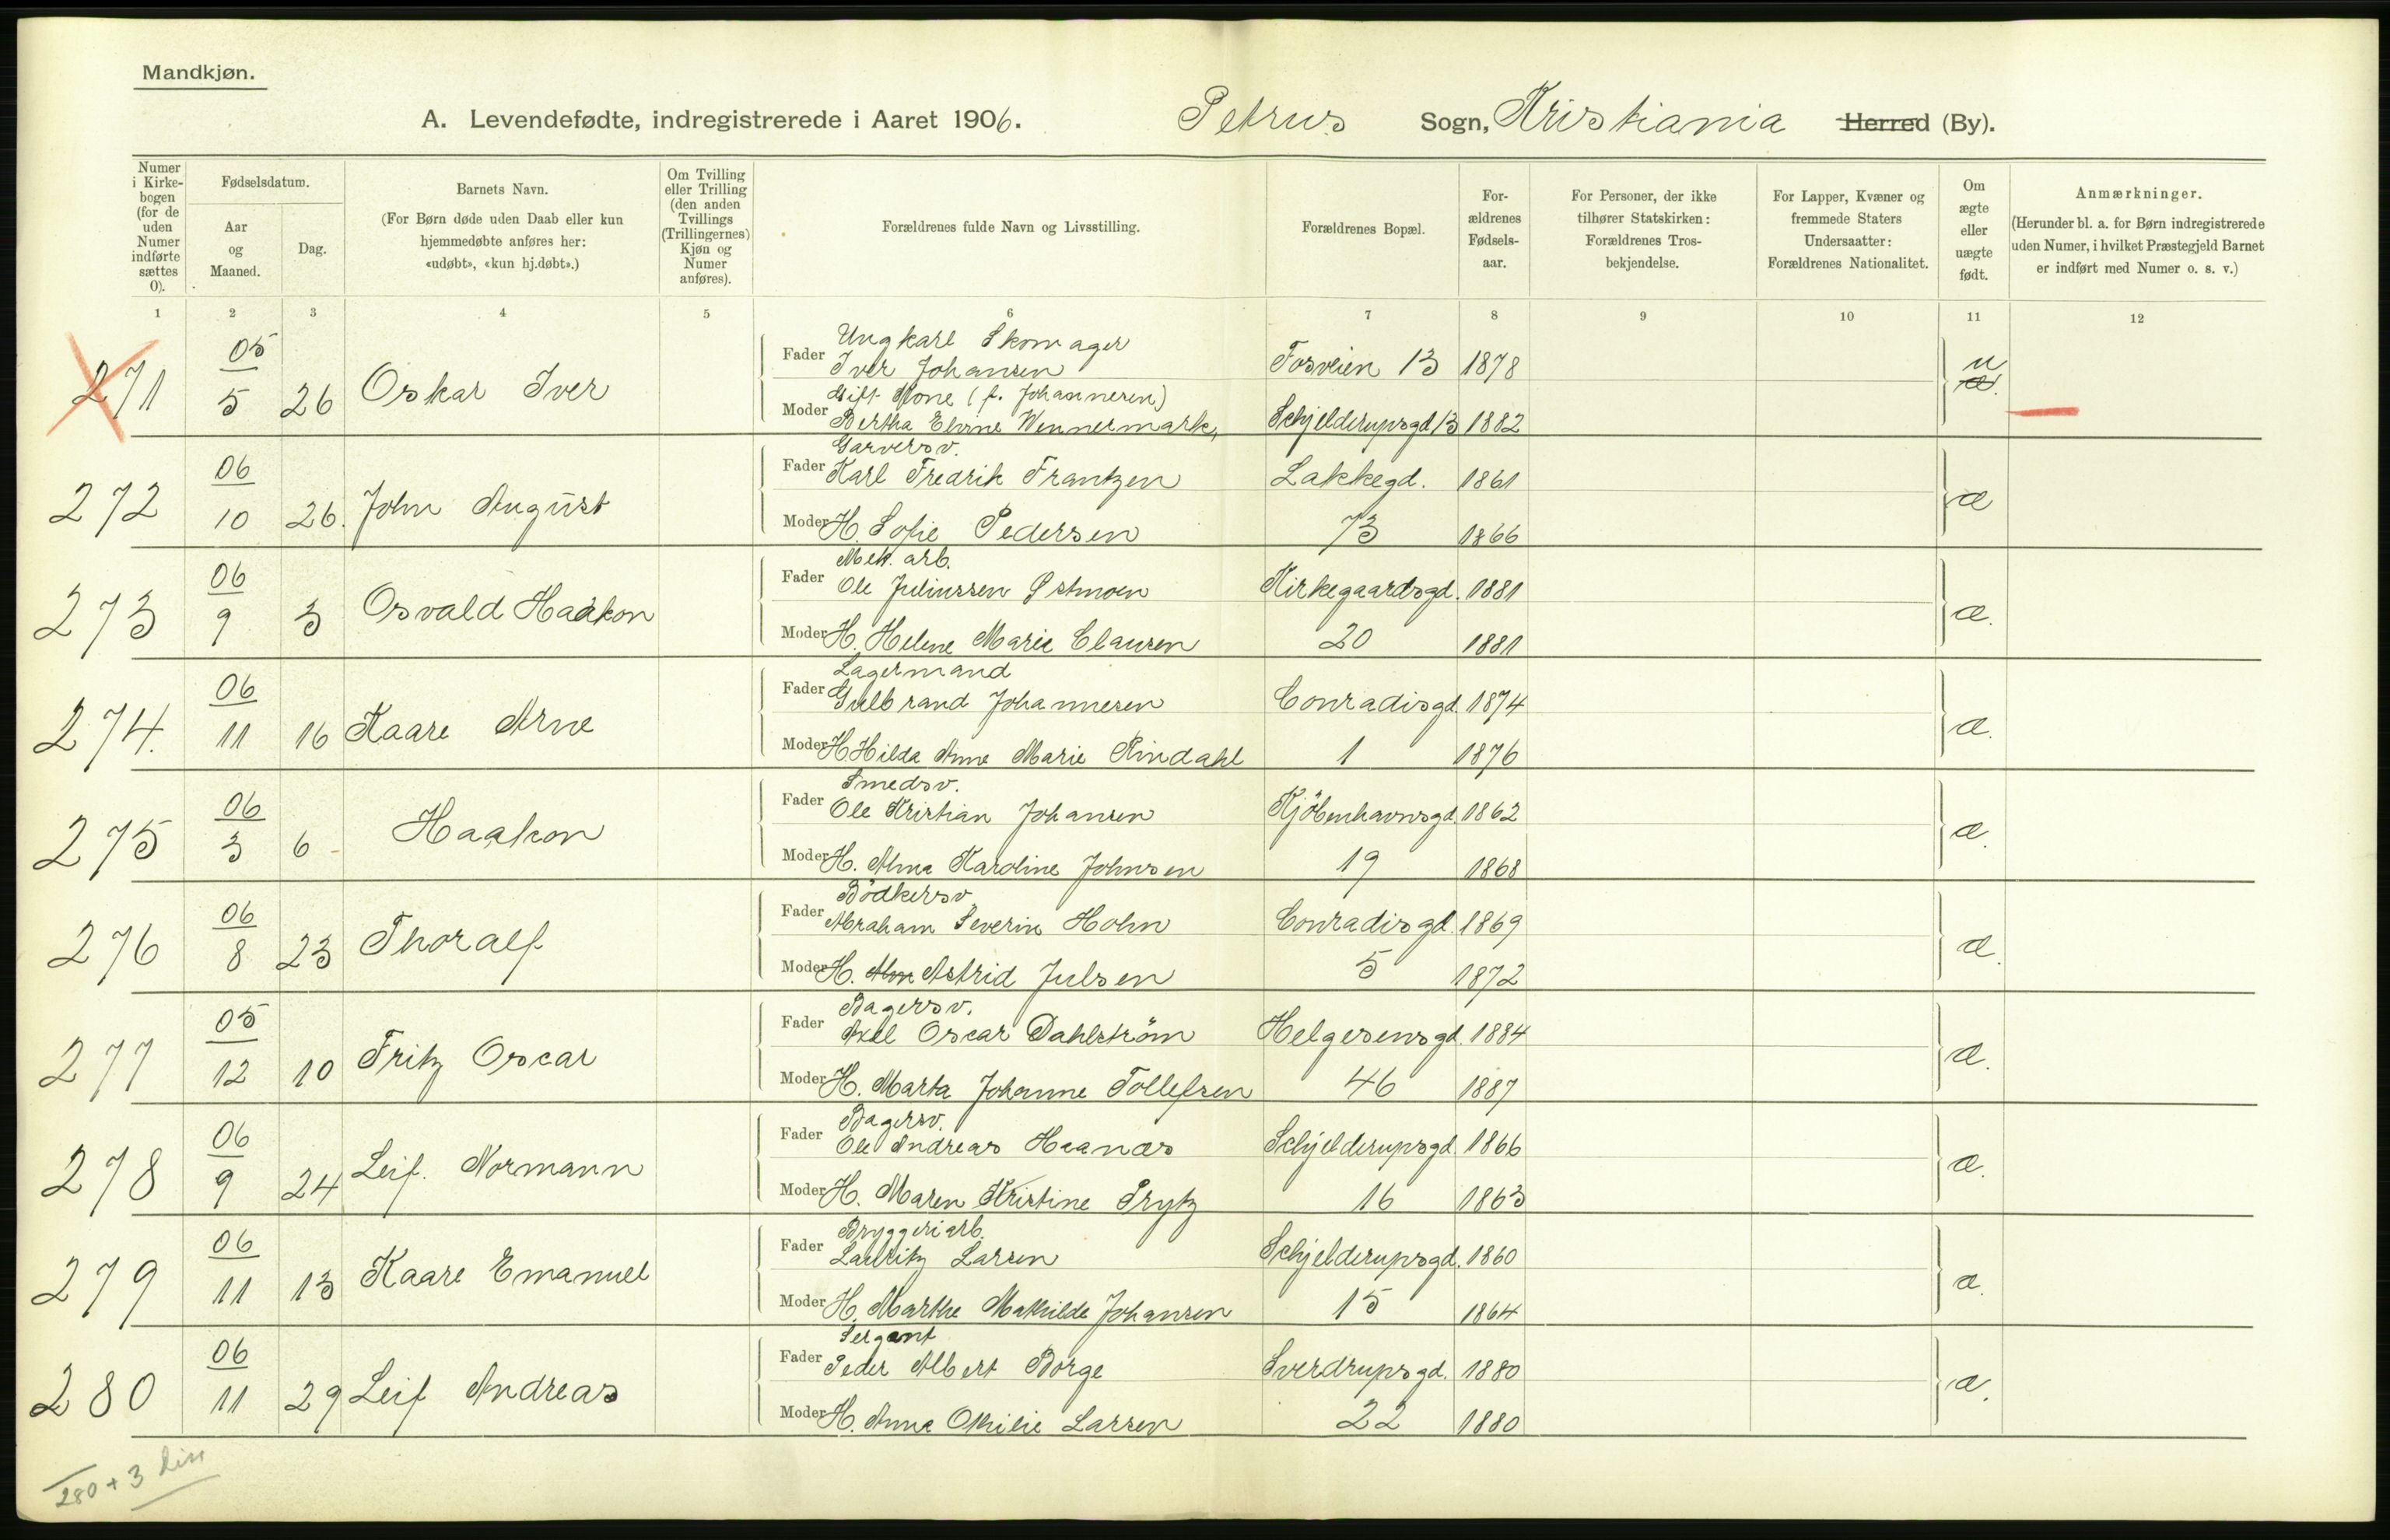 Mandkjøn.
A. Levendefødte, indregistrerede i Aaret 1906. Petrus Sogn, Kristiania Herred (By).
Numer i Kirke-bogen (for de uden Numer indførte sættes 0).
Fødselsdatum.
Aar og Maaned.
Dag.
Barnets Navn.
(For Børn døde uden Daab eller kun hjemmedøbte anføres her: «udøbt», «kun hj.døbt».)
Om Tvilling eller Trilling (den anden Tvillings (Trillingernes) Kjøn og Numer anføres).
Forældrenes fulde Navn og Livsstilling.
Forældrenes Bopæl.
For-ældrenes Fødsels-aar.
For Personer, der ikke tilhører Statskirken: Forældrenes Tros-bekjendelse.
For Lapper, Kvæner og fremmede Staters Undersaatter: Forældrenes Nationalitet.
Om ægte eller uægte født.
Anmærkninger.
(Herunder bl. a. for Børn indregistrerede uden Numer, i hvilket Præstegjeld Barnet er indført med Numer o. s. v.)
1 2 3 4 5 6 7 8 9 10 11 12
Ungkarl Skomager
271 05/5 26 Oskar Iver Fader Iver Johansen Fosveien 13 1878 u æ.
Gift Kone (f. Johannesen)
Moder Bertha Elvine Wennermark, Schjelderupsgd 13 1882
Garversv.
272 06/10 26. John August Fader Karl Fredrik Frantzen Lakkegd. 1861 æ
Moder H. Sofie Pedersen 73 1866
Mek. arb.
273 06/9 3 Osvald Haakon Fader Ole Juliussen Østmoen Kirkegaardsgd. 1881 æ.
Moder H. Helene Marie Clausen 20 1881
Lagermand
274. 06/11 16 Kaare Arne Fader Gulbrand Johannesen Conradisgd. 1874 æ.
Moder H. Hilda Anne Marie Rindahl 1 1876
Smedsv.
275 06/3 6 Haakon Fader Ole Kristian Johansen Kjöbenhavnsgd. 1862 æ.
Moder H. Alma Karoline Johnsen 19 1868
Bödkersv.
276 06/8 23 Thoralf Fader Abraham Severin Holm Conradisgd. 1869 æ.
Moder H. Astrid Julsen 5 1872
Bagersv.
277 05/12 10 Fritz Oscar Fader Axel Oscar Dahlström Helgesensgd. 1884 æ.
Moder H. Marta Johanne Tollefsen 46 1887
Bagersv.
278 06/9 24 Leif. Normann Fader Ole Andreas Haanæs Schjelderupsgd. 1866 æ.
Moder H. Maren Kristine Prytz 16 1863
Bryggeriarb.
279 06/11 13 Kaare Emanuel Fader Lauritz Larsen Schjelderupsgd. 1860 æ.
Moder H. Marthe Mathilde Johansen 15 1864
Sergant
280 06/11 29 Leif Andreas Fader Peder Albert Borge Sverdrupsgd. 1880 æ.
Moder H. Anna Othilie Larsen 22 1880
280 + 3